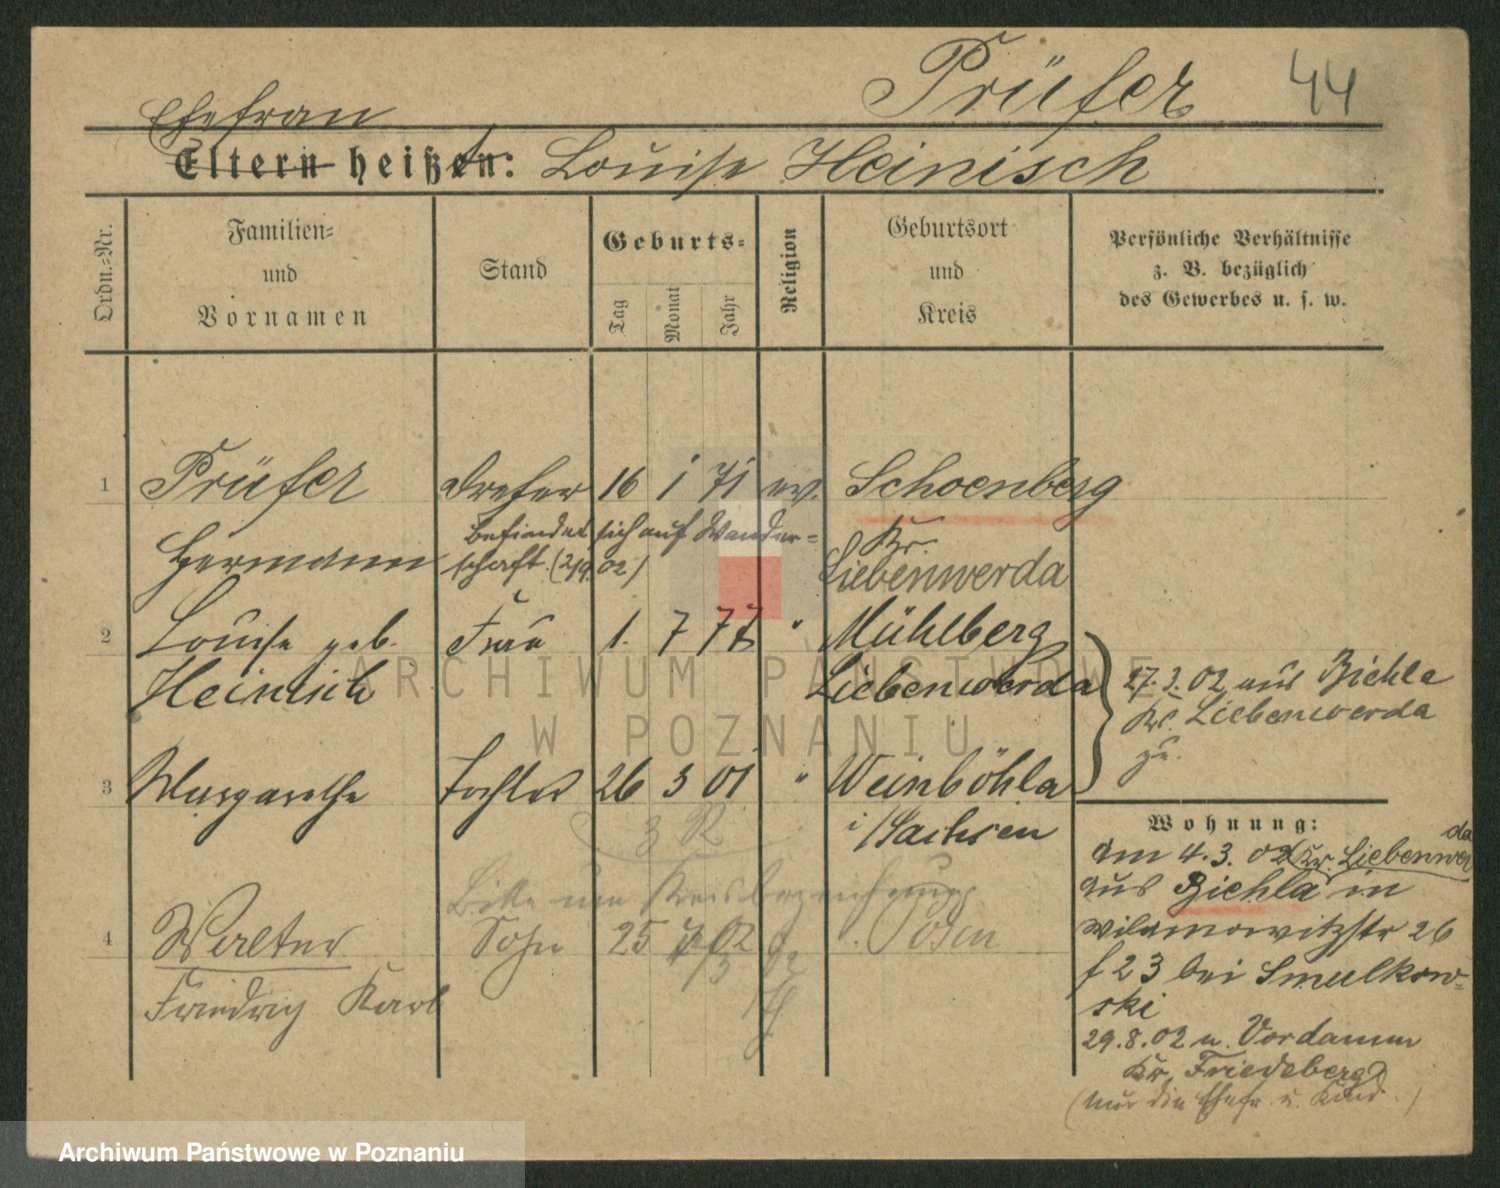 Prüfer 44
Ehefrau
Eltern heißen: Louise Heinisch
Ordn.-Nr.
Familien-
und
Vornamen
Stand
Geburts-
Tag
Monat
Jahr
Religion
Geburtsort
und
Kreis
Persönliche Verhältnisse
z. B. bezüglich
des Gewerbes u. s. w.
1 Prüfer Dreher 16 1 71 ev. Schoenberg
befindet sich auf Wander-
Kr.
Hermann schaft. (2/9. 02) Liebenwerda
2 Louise geb. Frau 1. 7 77 " Mühlberg
Heinisch Liebenwerda
27.3.02 aus Biehla
Kr. Liebenwerda
zu.
3 Margarethe Tochter 26 3 01 " Weinböhla
i/Sachsen
Wohnung:
am 4.3.02 (Kr. Liebenwerda
aus Biehla in
Bitte um Kreisbezeichnung
4 Walter Sohn 25 02 Posen
Friedrich Karl
Wilamowitzstr 26
f 23 bei Smulkow-
ski
29.8.02 n. Vordamm
Kr. Friedeberg
(nur die Ehefr. u. Kind.)
ARCHIWUM PAŃSTWOWE
W POZNANIU
Archiwum Państwowe w Poznaniu